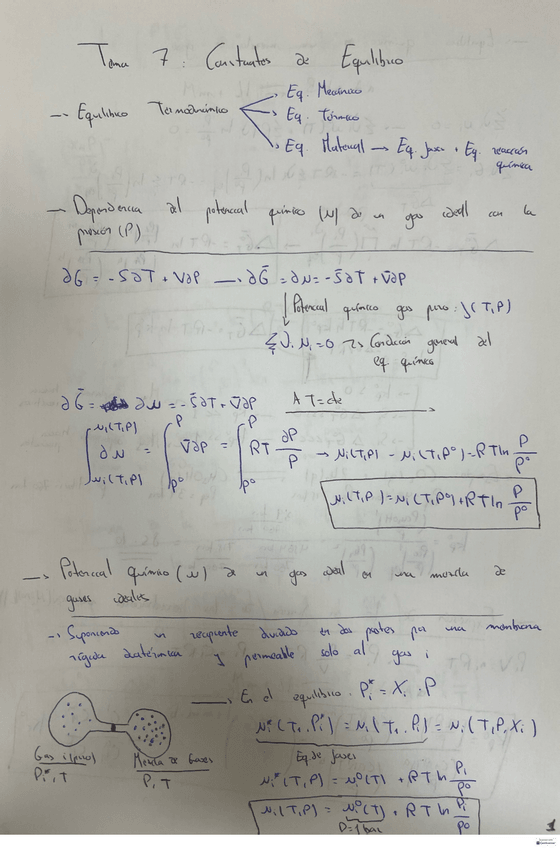 Tema 7: Constantes de Equilibrio
→ Equilibrio Termodinámico
Eq. Mecánico
Eq. Térmico
Eq. Material → Eq. fases + Eq. reacción
química
→ Dependencia del potencial químico (μ) de un gas ideal con la
presión (P)
∂G = -S∂T + V∂P → ∂Ḡ = ∂μ = -S̄∂T + V̄∂P
Potencial químico gas puro: f(T,P)
Σ νᵢ μᵢ = 0 → Condición general del
eq. químico
∂Ḡ = ∂μ = -S̄∂T + V̄∂P A T=cte
∫ ∂μ = ∫ V̄∂P = ∫ RT ∂P/P → μi(T,P) - μi(T,P°) = RT ln P/P°
μi(T,P) = μi(T,P°) + RT ln P/P°
→ Potencial Químico (μ) de un gas ideal en una mezcla de
gases ideales
→ Suponiendo un recipiente dividido en dos partes por una membrana
rígida diatérmica y permeable solo al gas i
→ En el equilibrio: Pi* = Xi · P
μi*(T, Pi*) = μi(T, Pi) = μi(T, P, Xi)
Eq. de fases
Gas i (puro)
Pi*, T
Mezcla de Gases
P, T
μi*(T,P) = μi°(T) + RT ln Pi/P°
μi(T,P) = μi°(T) + RT ln Pi/P°
P=1bar
1